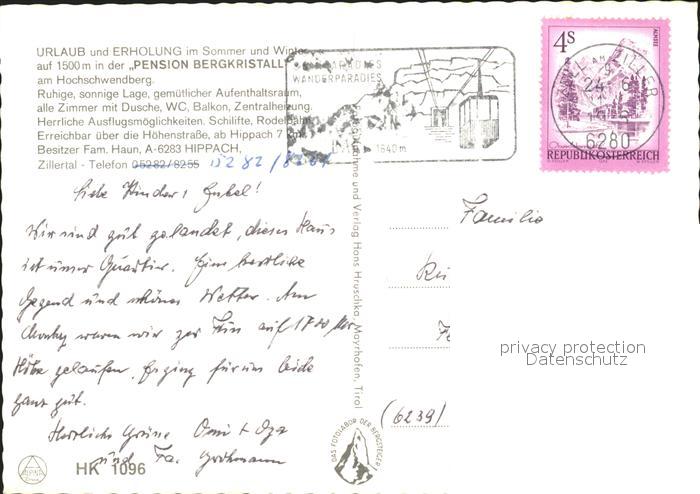 URLAUB und ERHOLUNG im Sommer und Winter
auf 1500 m in der „PENSION BERGKRISTALL"
am Hochschwendberg.
Ruhige, sonnige Lage, gemütlicher Aufenthaltsraum,
alle Zimmer mit Dusche, WC, Balkon, Zentralheizung.
Herrliche Ausflugsmöglichkeiten. Schilifte, Rodelbahn.
Erreichbar über die Höhenstraße, ab Hippach 7 km.
Besitzer Fam. Haun, A-6283 HIPPACH,
Zillertal - Telefon 05282/8255
WANDERPARADIES
1640 m
4S
ZILLER
6280
REPUBLIK ÖSTERREICH
Liebe Kinder, Enkel!
Wir sind gut gelandet, dieses Haus
ist unser Quartier. Eine herrliche
Gegend und schönes Wetter. Am
waren wir zu Fuß auf 1700 Mtr
Höhe gelaufen. Er ging für uns beide
ganz gut.
Herzliche Grüße Omi + Opa
und Fa.
Familie
(6239)
Aufnahme und Verlag Hans Hruschka, Mayrhofen, Tirol
DAS FOTOLABOR DER BERGSTEIGER
ALPINA
HK 1096
privacy protection
Datenschutz